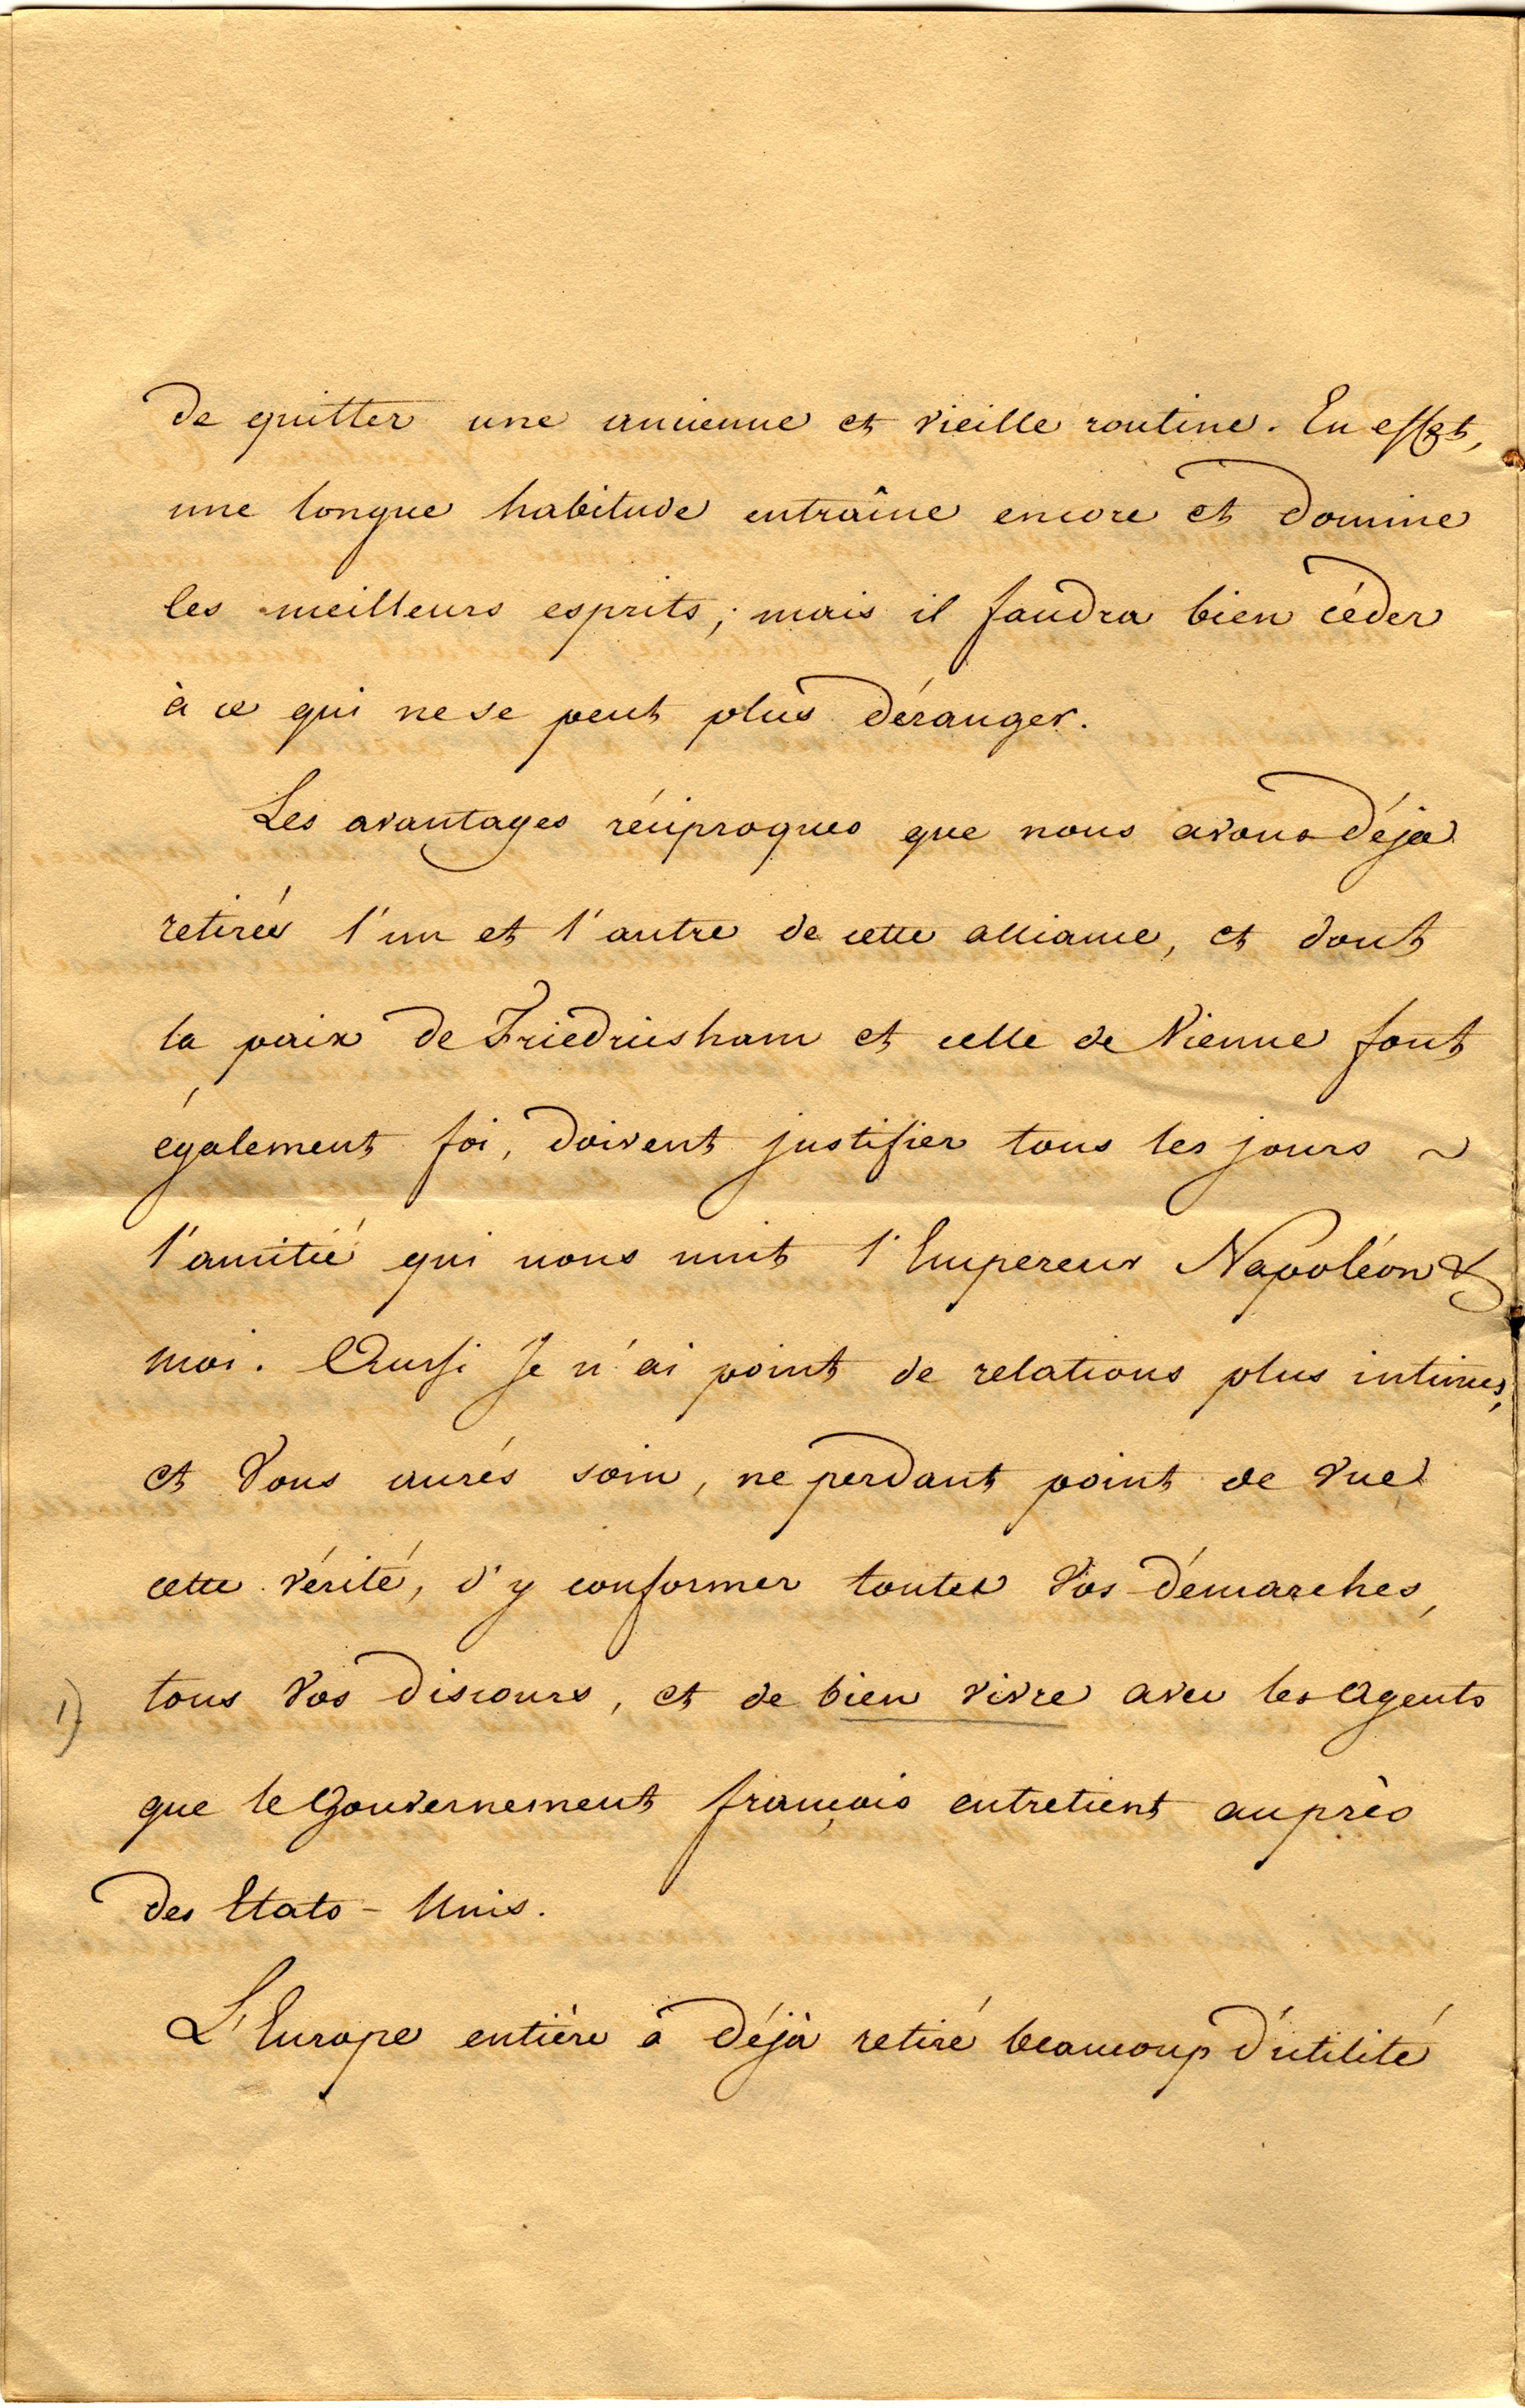 de quitter une ancienne et vieille routine. En effet,
une longue habitude entraîne encore et domine
les meilleurs esprits; mais il faudra bien céder
à ce qui ne se peut plus déranger.
Les avantages réciproques que nous avons déja
retirés l'un et l'autre de cette alliance, et dont
la paix de Friedricsham et celle de Vienne font
également foi, doivent justifier tous les jours ~
l'amitié qui nous unit l'Empereur Napoléon &
moi. Aussi Je n'ai point de relations plus intimes,
et Vous aurés soin, ne perdant point de vue
cette vérité, d'y conformer toutes Vos démarches,
1) tous Vos discours, et de bien vivre avec les Agents
que le Gouvernement françois entretient auprès
des Etats-Unis.
L'Europe entière a déjà retiré beaucoup d'utilité